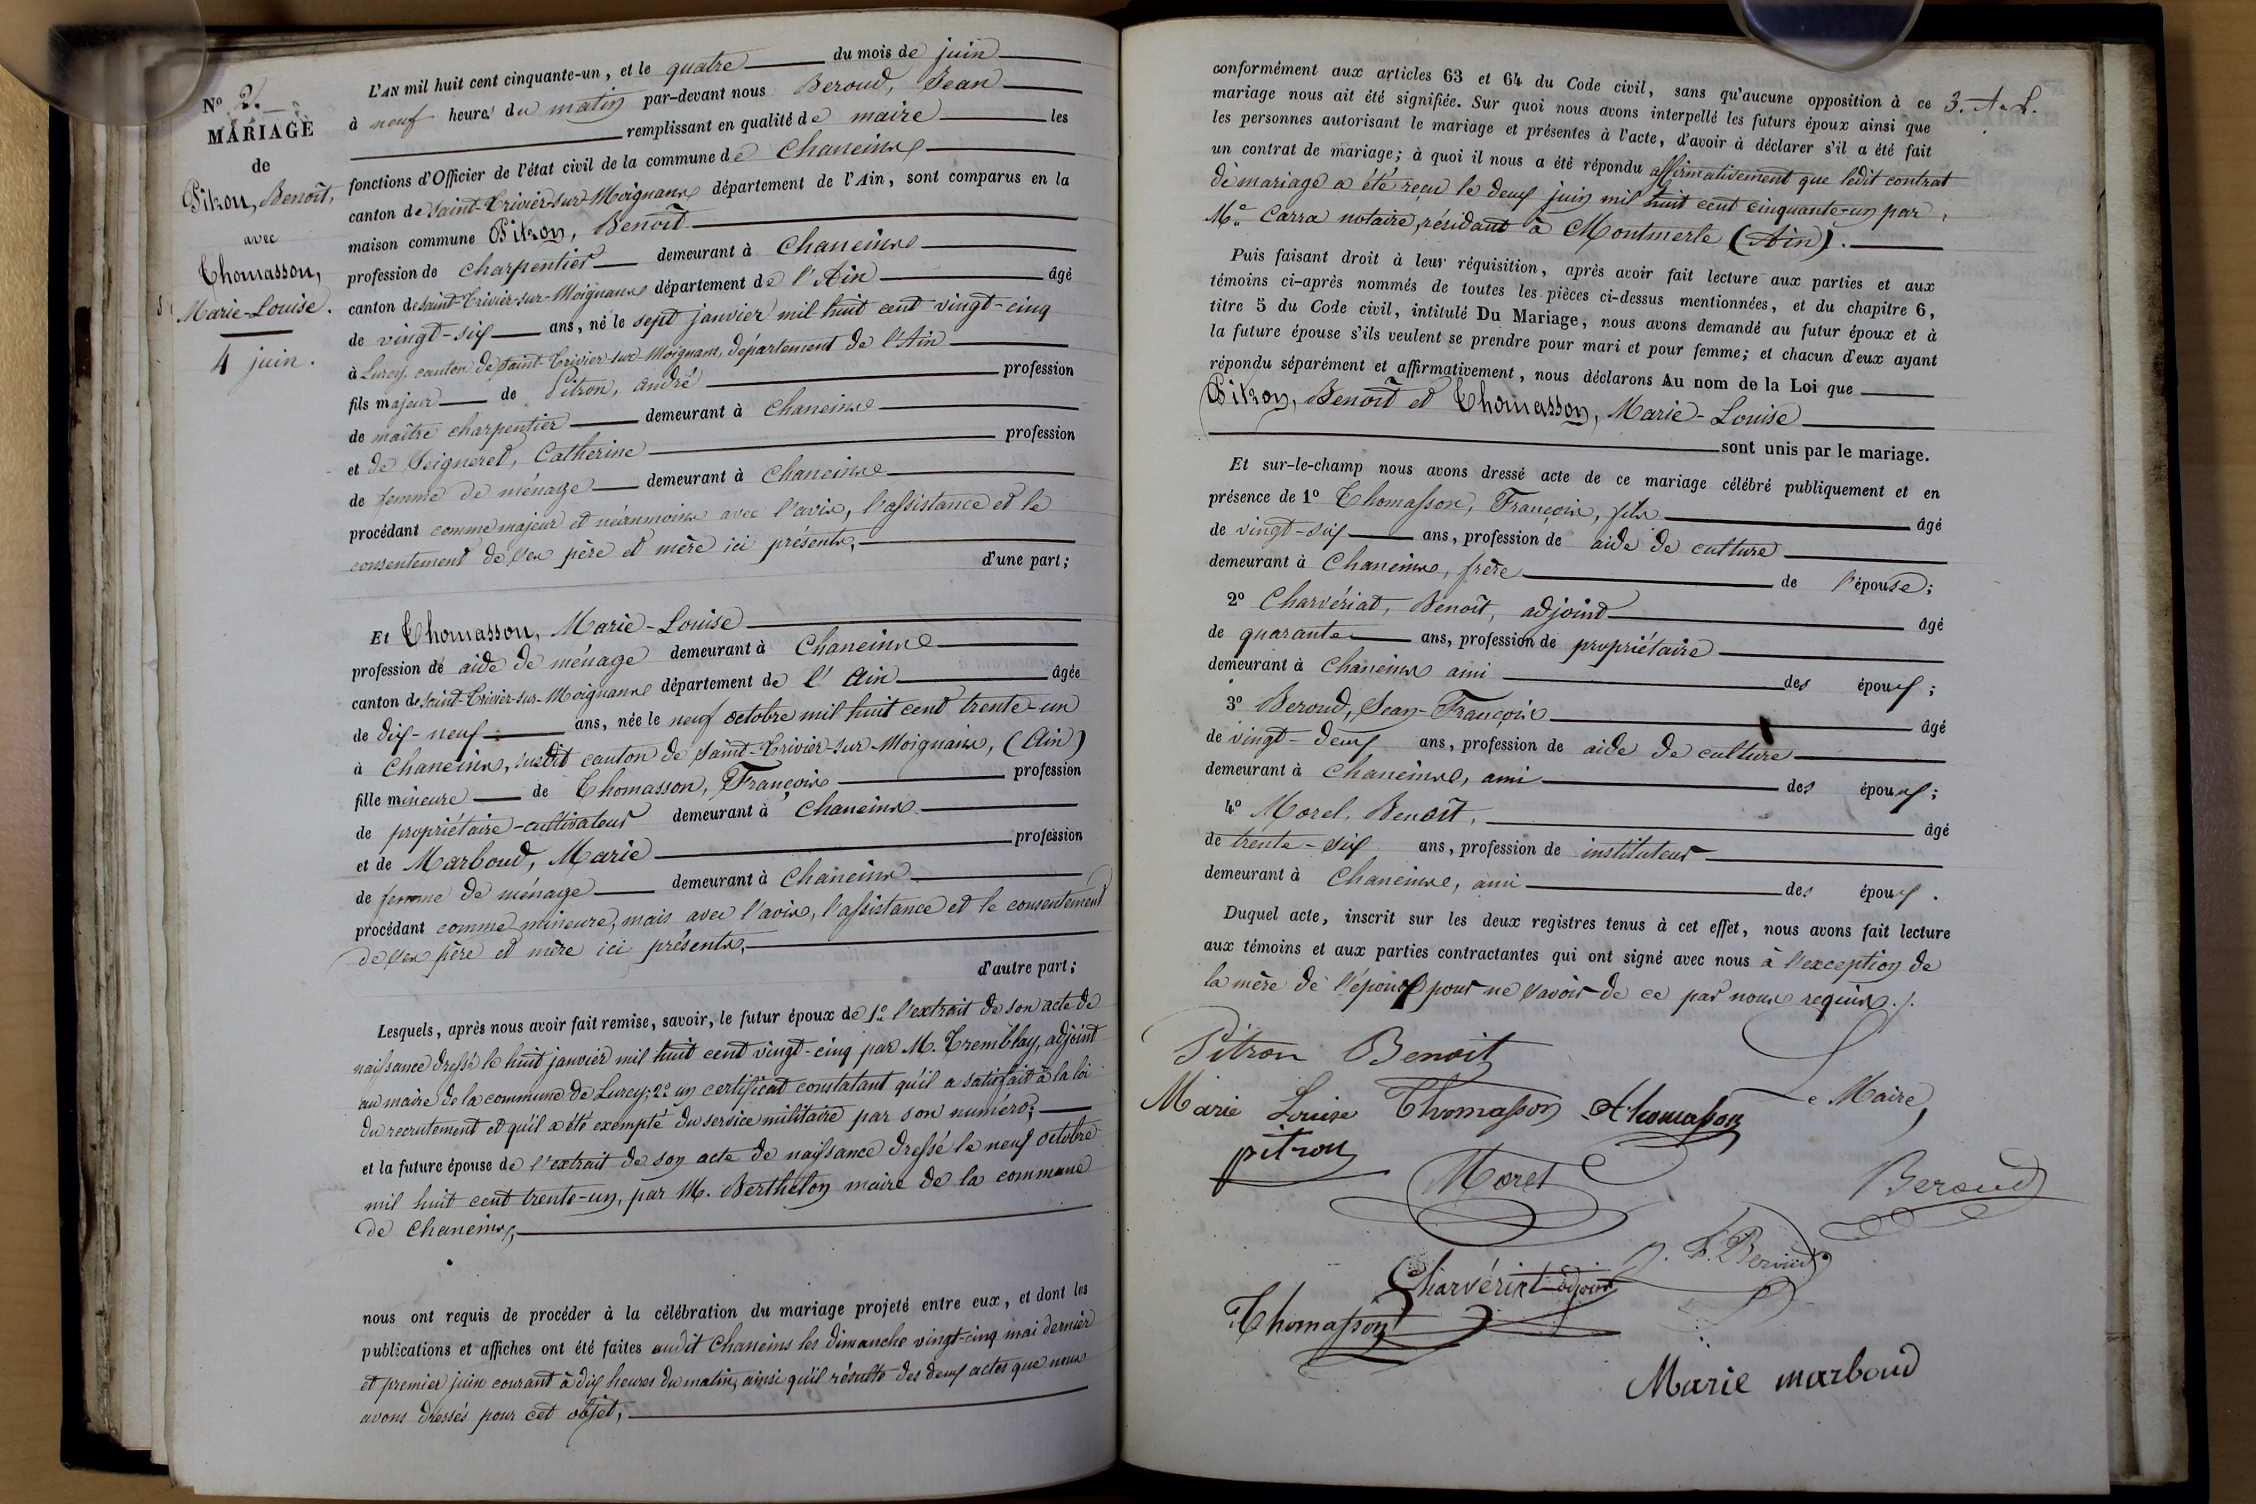 N° 2.
MARIAGE
de
Pitron, Benoît,
avec
Thomasson,
Marie-Louise.
4 juin.
L'AN mil huit cent cinquante-un, et le quatre du mois de juin
à neuf heures du matin par-devant nous Beroud, Jean
remplissant en qualité de maire les
fonctions d'Officier de l'état civil de la commune de Chaneins
canton de Saint-Trivier-sur-Moignans département de l'Ain, sont comparus en la
maison commune Pitron, Benoît
profession de charpentier demeurant à Chaneins
canton de Saint-Trivier-sur-Moignans département de l'Ain âgé
de vingt-six ans, né le sept janvier mil huit cent vingt-cinq
à Lurcy, canton de Saint-Trivier-sur-Moignans, département de l'Ain
fils majeur de Pitron, andré profession
de maître charpentier demeurant à Chaneins
et de Seigneret, Catherine profession
de femme de ménage demeurant à Chaneins
procédant comme majeur et néanmoins avec l'avis, l'assistance et le
consentement de ses père et mère ici présents,
d'une part;
Et Thomasson, Marie-Louise
profession de aide de ménage demeurant à Chaneins
canton de Saint-Trivier-sur-Moignans département de l'Ain âgée
de dix-neuf ans, née le neuf octobre mil huit cent trente-un
à Chaneins, susdit canton de Saint-Trivier-sur-Moignans, (Ain)
fille mineure de Thomasson, François profession
de propriétaire-cultivateur demeurant à Chaneins
et de Marboud, Marie profession
de femme de ménage demeurant à Chaneins
procédant comme mineure, mais avec l'avis, l'assistance et le consentement
de ses père et mère ici présents,
d'autre part;
Lesquels, après nous avoir fait remise, savoir, le futur époux de 1° l'extrait de son acte de
naissance dressé le huit janvier mil huit cent vingt-cinq par M. Tremblay, adjoint
au maire de la commune de Lurcy; 2° un certificat constatant qu'il a satisfait à la loi
du recrutement et qu'il a été exempté du service militaire par son numéro;
et la future épouse de l'extrait de son acte de naissance dressé le neuf octobre
mil huit cent trente-un, par M. Berthelon maire de la commune
de Chaneins,
nous ont requis de procéder à la célébration du mariage projeté entre eux, et dont les
publications et affiches ont été faites audit Chaneins les dimanche vingt-cinq mai dernier
et premier juin courant à dix heures du matin, ainsi qu'il résulte des deux actes que nous
avons dressés pour cet objet,
conformément aux articles 63 et 64 du Code civil, sans qu'aucune opposition à ce
mariage nous ait été signifiée. Sur quoi nous avons interpellé les futurs époux ainsi que
les personnes autorisant le mariage et présentes à l'acte, d'avoir à déclarer s'il a été fait
un contrat de mariage; à quoi il nous a été répondu affirmativement que ledit contrat
de mariage a été reçu le deux juin mil huit cent cinquante-un par
Me Carra notaire, résidant à Montmerle (Ain).
Puis faisant droit à leur réquisition, après avoir fait lecture aux parties et aux
témoins ci-après nommés de toutes les pièces ci-dessus mentionnées, et du chapitre 6,
titre 5 du Code civil, intitulé Du Mariage, nous avons demandé au futur époux et à
la future épouse s'ils veulent se prendre pour mari et pour femme; et chacun d'eux ayant
répondu séparément et affirmativement, nous déclarons Au nom de la Loi que
Pitron, Benoît et Thomasson, Marie-Louise
sont unis par le mariage.
Et sur-le-champ nous avons dressé acte de ce mariage célébré publiquement et en
présence de 1° Thomasson, François, fils âgé
de vingt-six ans, profession de aide de culture
demeurant à Chaneins, frère de l'épouse;
2° Charvériat, Benoît, adjoint âgé
de quarante ans, profession de propriétaire
demeurant à Chaneins ami des époux;
3° Beroud, Jean-François âgé
de vingt-deux ans, profession de aide de culture
demeurant à Chaneins, ami des époux;
4° Morel, Benoît, âgé
de trente-six ans, profession de instituteur
demeurant à Chaneins, ami des époux.
Duquel acte, inscrit sur les deux registres tenus à cet effet, nous avons fait lecture
aux témoins et aux parties contractantes qui ont signé avec nous à l'exception de
la mère de l'époux pour ne savoir de ce par nous requis./.
Pitron Benoit
Marie Louise Thomasson Thomasson Le Maire,
pitron
Morel
Beroud
J. F. Beroud
Charvériat adjoint
F. Thomasson
Marie marboud